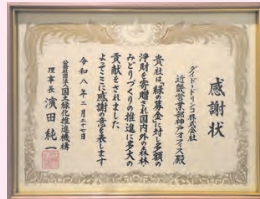 感謝状
ダイドードリンコ株式会社
近畿営業部神戸オフィス殿
貴社は「緑の募金」に対し多額の
浄財を寄贈され国内外の森林
みどりづくりの推進に多大の
貢献をされました
よってここに感謝の意を表します
令和八年二月二十七日
公益社団法人国土緑化推進機構
理事長 濱田純一